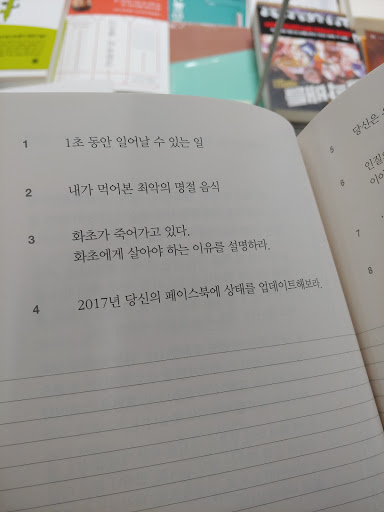 1 1초 동안 일어날 수 있는 일
2 내가 먹어본 최악의 명절 음식
3 화초가 죽어가고 있다.
화초에게 살아야 하는 이유를 설명하라.
4 2017년 당신의 페이스북에 상태를 업데이트해보라.
5 당신은
6
7
8